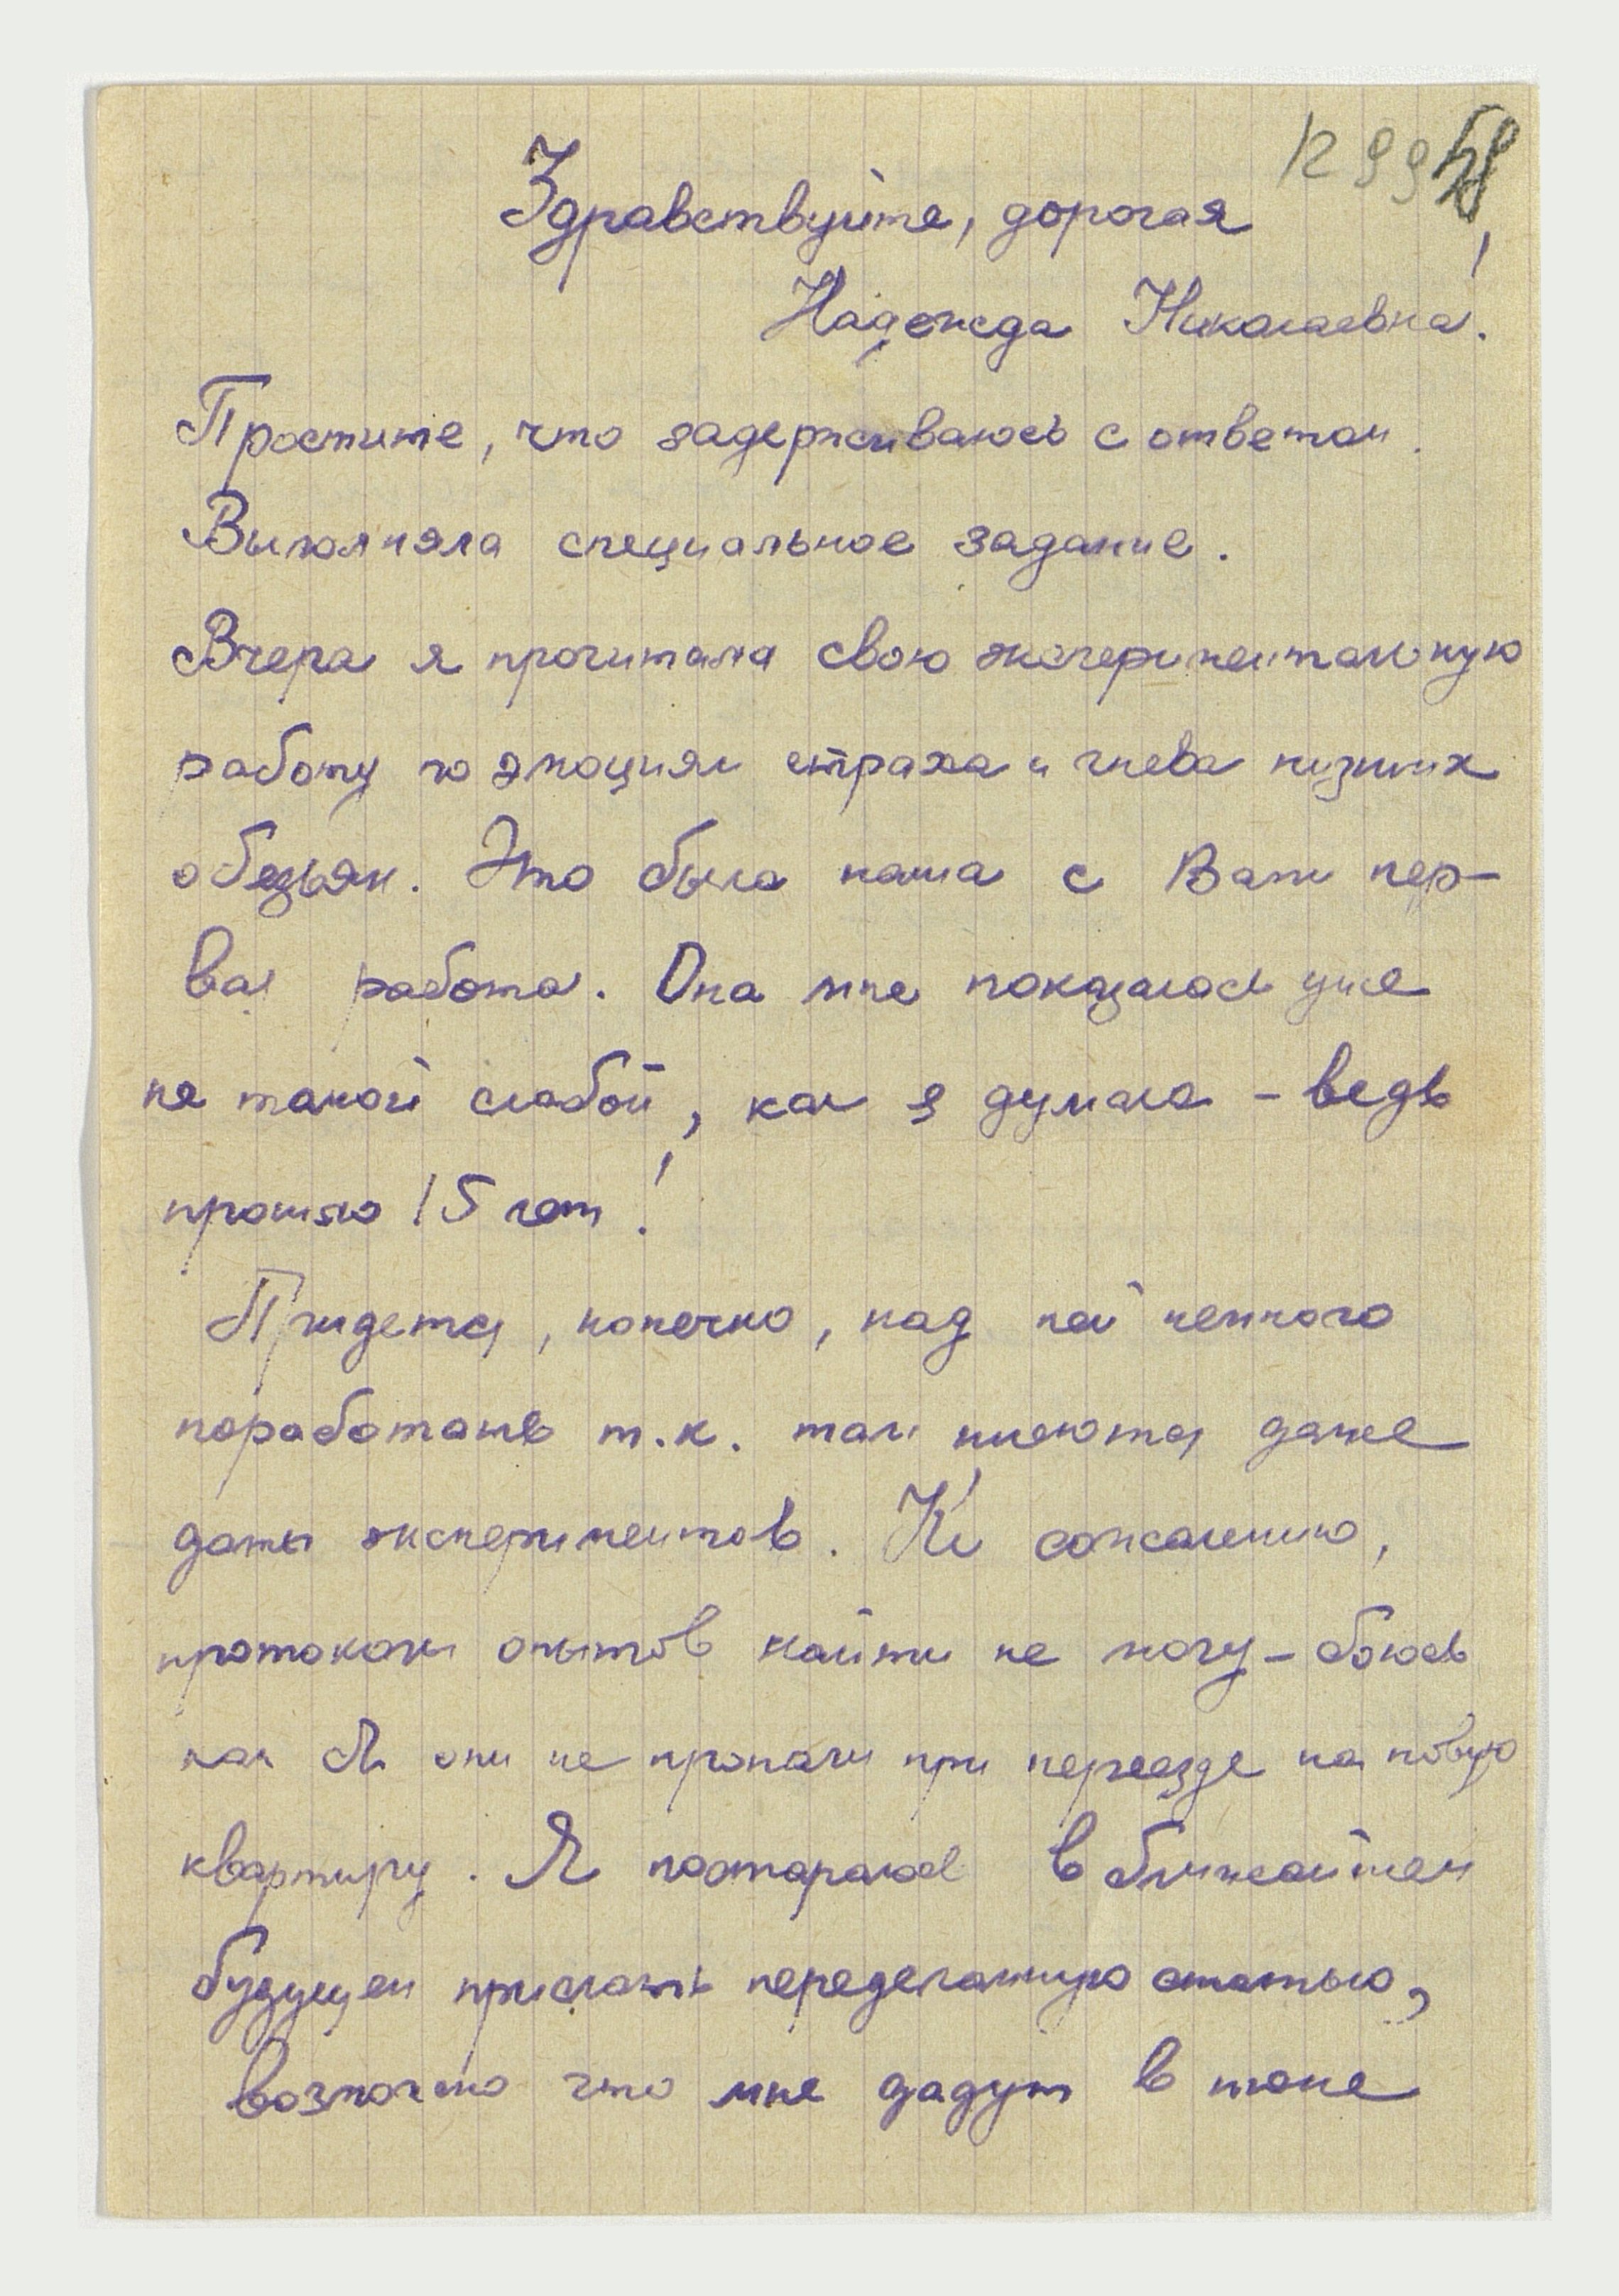 Здравствуйте, дорогая
Надежда Николаевна!
Простите, что задерживаюсь с ответом.
Выполняла специальное задание.
Вчера я прочитала свою экспериментальную
работу по эмоциям страха и гнева низших
обезьян. Это была наша с Вами пер-
вая работа. Она мне показалась уже
не такой слабой, как я думала – ведь
прошло 15 лет!
Придется, конечно, над ней немного
поработать т.к. там имеются даже
даты экспериментов. К сожалению,
протоколы опытов найти не могу – боюсь
как бы они не пропали при переезде на новую
квартиру. Я постараюсь в ближайшем
будущем прислать переделанную статью,
возможно что мне дадут в июне